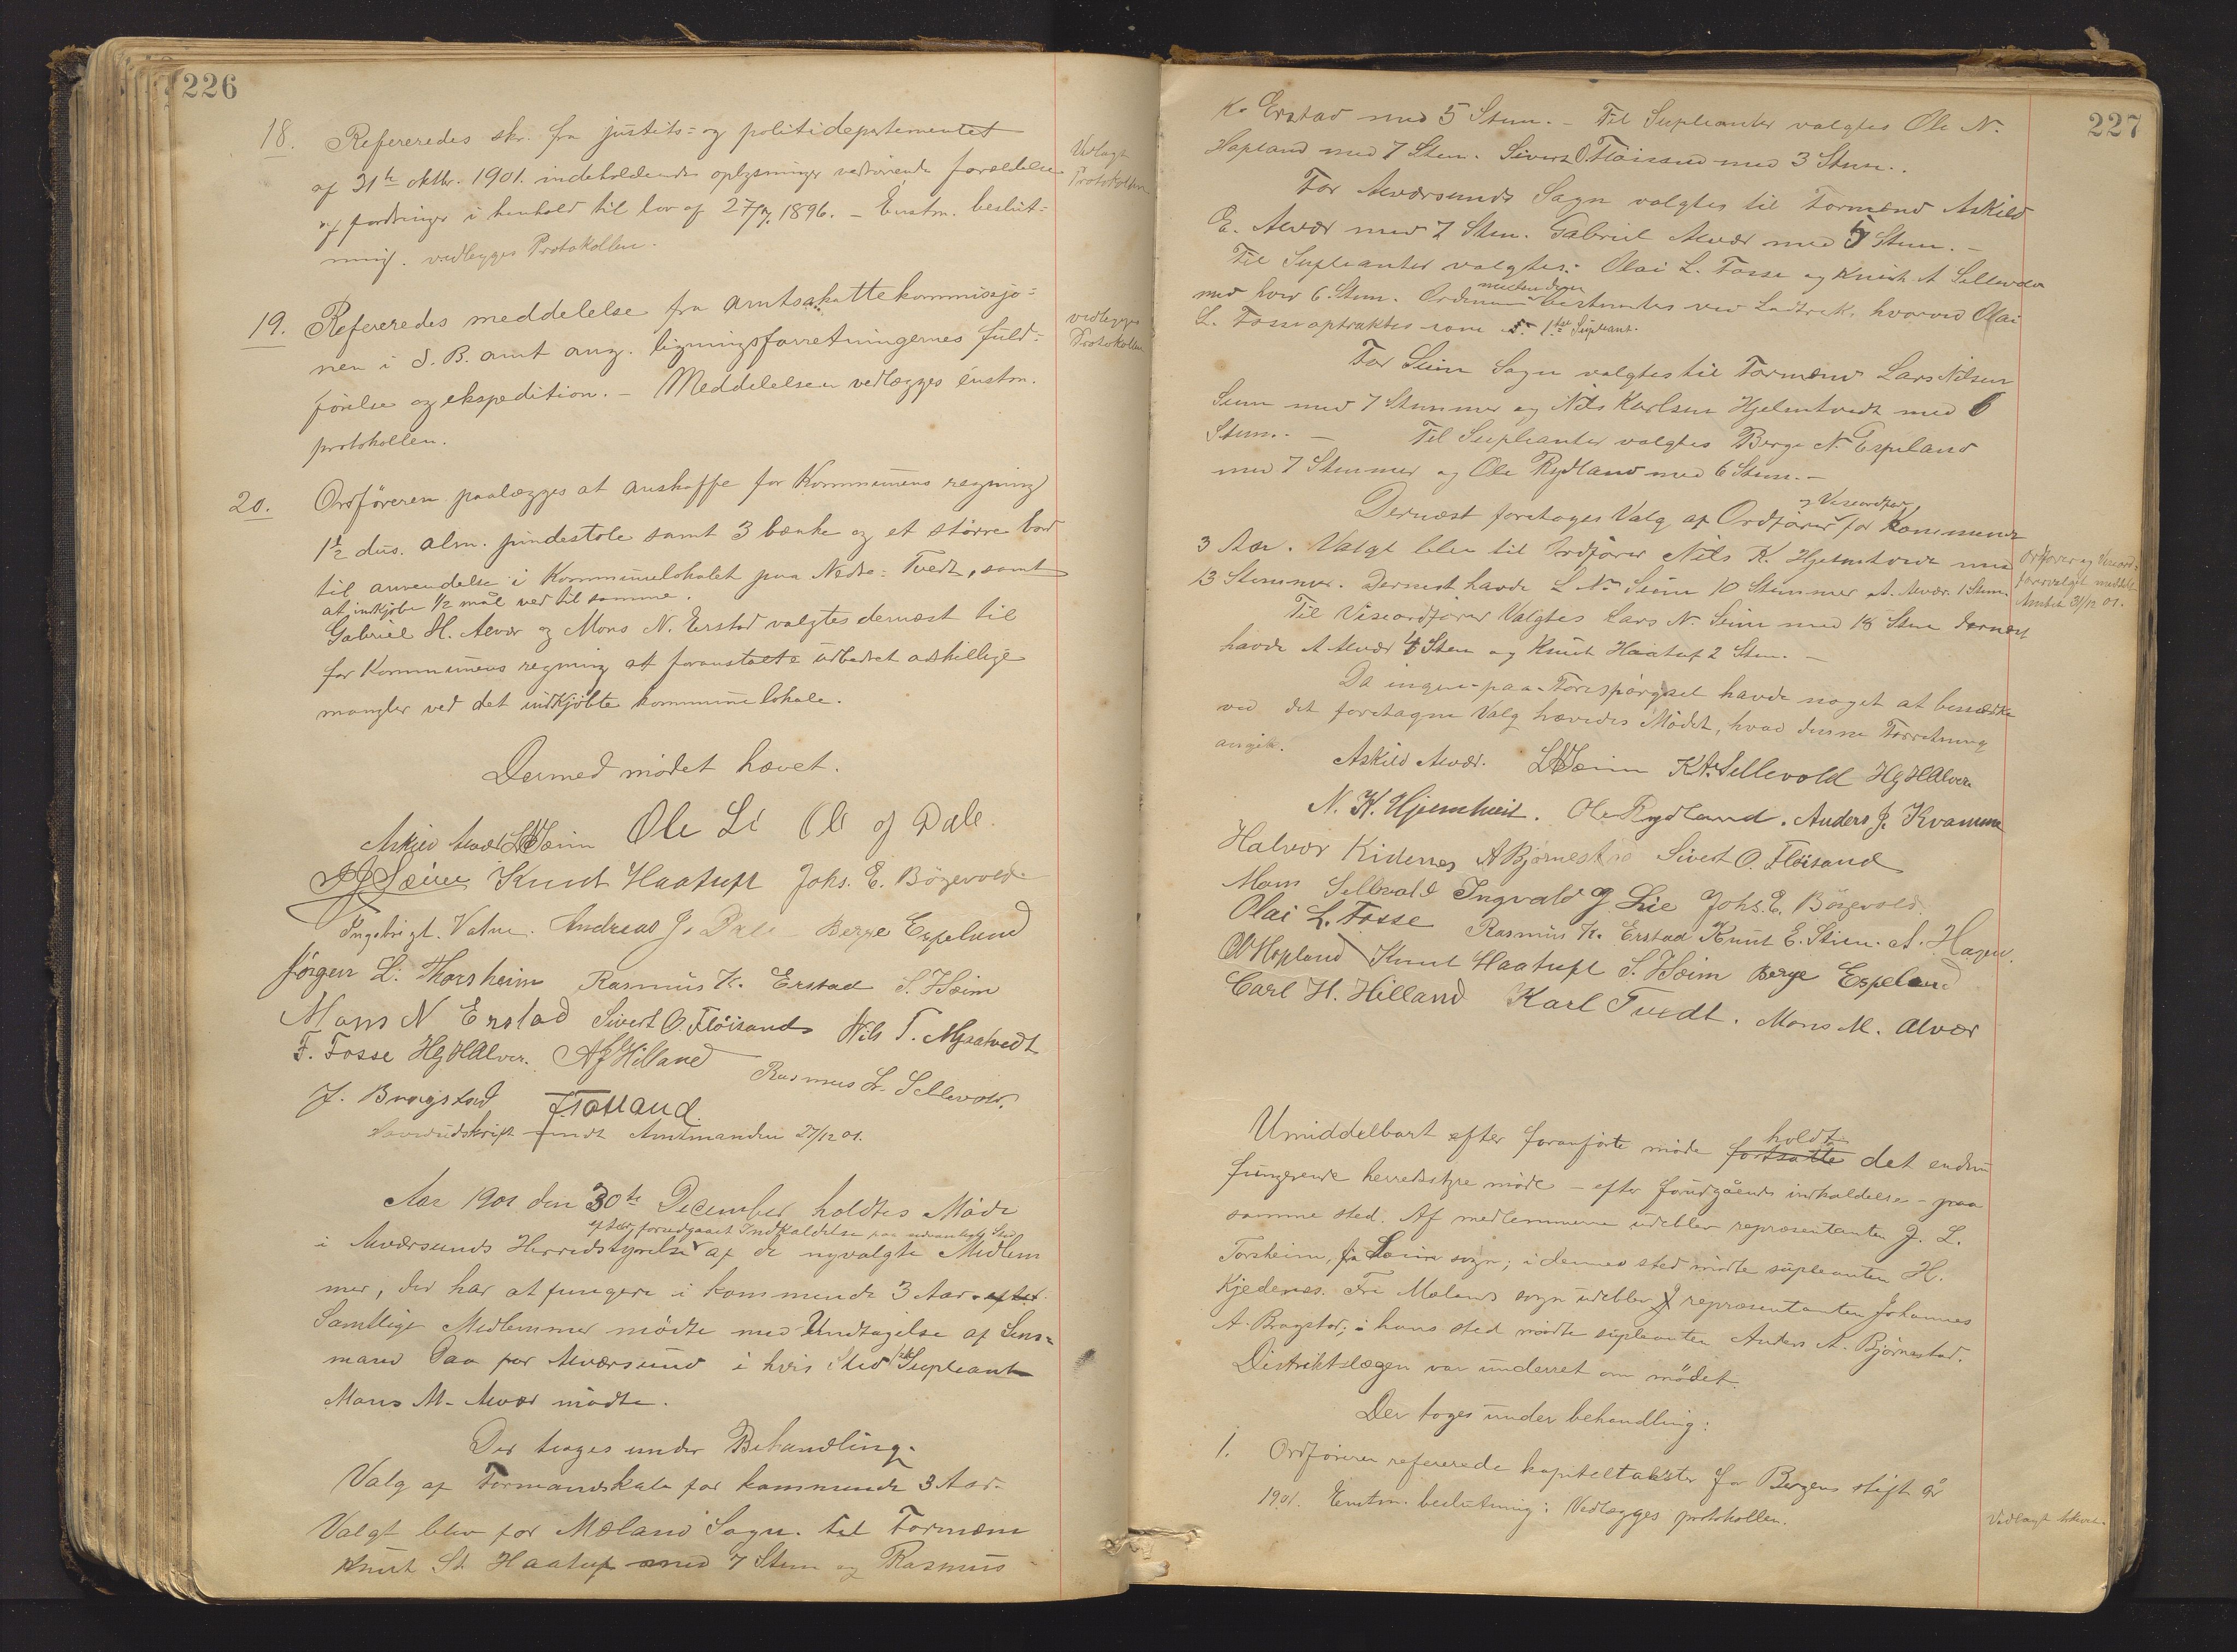 226
18. Refereredes skr. fra justits- og politidepartementet
af 31te oktbr. 1901. indeholdende oplysninger vedrørende forældelse
af fordringer i henhold til lov af 27/7 1896. – Enstm. beslut-
ning. vedlegges Protokollen.
Vedlagt
Protokollen
19. Refereredes meddelelse fra amtsskattekommissjo-
nen i S. B. amt ang. ligningsforretningernes fuld-
førelse og ekspedition. – Meddelelsen vedlægges enstm.
protokollen.
vedlegges
Protokollen
20. Ordføreren paalægges at anskaffe for Kommunens regning
1½ dus. alm. pindestole samt 3 bænke og et større bord
til anvendelse i Kommunelokalet paa Nedre-Tvedt, samt
at indkjøbe 1/2 mål ved til samme.
Gabriel H. Alvær og Mons N. Erstad valgtes dernæst til
for Kommunens regning at foranstalte udbedret adskillige
mangler ved det indkjøbte kommunelokale.
Dermed mødet hævet.
Askild Alvær LNSeim Ole Li Ole J Dale.
Seim Knut Haatuft Johs. E. Bøgevold.
Ingebrigt Vatne. Andreas J. Dale Berge Espeland
Jørgen L. Thorsheim Rasmus K. Erstad S. Seim
Mons N Erstad Sivert O. Fløisand Nils T. Mjaatvedt
F. Fosse HgHAlver. Hilland Rasmus L. Sellevold.
J. Bragstad
Hovedudskrift sendt Amtmanden 27/12 01.
Aar 1901 den 30te December holdtes Møde
efter forudgaaet Indkaldelse paa sedvanlig Sted
i Alværsunds Herredstyrelse af de nyvalgte Medlem
mer, der har at fungere i kommende 3 Aar. efter
Samtlige Medlemmer mødte med Undtagelse af Lens-
mand Daa for Alværsund i hvis Sted 1ste Supleant
Mons M. Alvær mødte.
Der toges under Behandling.
Valg af Formandskab for kommende 3 Aar.
Valgt blev for Mæland Sogn. til Formænd
Knut St Haatuft med 7 Stem og Rasmus
227
K. Erstad med 5 Stem. – Til Supleanter valgtes Ole N.
Hopland med 7 Stem. Sivert O. Fløisand med 3 Stem.
For Alværsunds Sogn valgtes til Formænd Askild
E. Alvær med 7 Stem. Gabriel Alvær med 5 Stem. –
Til Supleanter valgtes: Olai L. Fosse og Knut A Sellevold
med hver 6. Stem. Ordenen mellem dem bestemtes ved Lodtræk, hvorved Olai
L. Fosse optraktes som 1ste Supleant.
For Seim Sogn valgtes til Formænd Lars Nilsen
Seim med 7 Stemmer og Nils Karlsen Hjelmtvedt med 6
Stem. – Til Supleanter valgtes Berge N. Espeland
med 7 Stemmer og Ole Rydland med 6 Stem. –
Dernæst foretoges Valg af Ordfører og Viseordfører for kommende
3 Aar. Valgt blev til Ordfører Nils K. Hjelmtvedt med
13 Stemmer. Dernæst havde L N. Seim 10 Stemmer A. Alvær 1 Stem.
Ordfører og Viseord-
førervalget meddelt
Amtet 31/12 01.
Til Viseordfører Valgtes Lars N. Seim med 18 Stem dernæst
havde A Alvær 4 Stem og Knut Haatuft 2 Stem. –
Da ingen paa Forespørgsel havde noget at bemærke
ved det foretagne Valg hævedes Mødet, hvad denne Forretning
angik.
Askild Alvær. LNSeim KA.Sellevold HgHAlver
N. K. Hjelmtveit. Ole Rydland. Anders J. Kvamme
Halvor Kidenes A Bjørnestad Sivert O. Fløisand
Mons Sellevold Ingvald J Lie Johs. E. Bøgevold.
Olai L. Fosse Rasmus K. Erstad Knut E. Stien. A. Hagen.
ONHopland Knut Haatuft S. Seim Berge Espeland
Carl H. Hilland Karl Tvedt. Mons M. Alvær
Umiddelbart efter foranførte møde fortsatte holdt det endnu
fungerende herredsstyre møde – efter forudgående indkaldelse – paa
samme sted. Af medlemmerne udeblev repræsentanten J. L.
Torsheim, fra Seim sogn; i dennes sted mødte supleanten H.
Kjedenes. Fra Mælands sogn udeblev repræsentanten Johannes
A. Bragstad; i hans sted mødte supleanten Anders A. Bjørnestad.
Distriktslægen var underret om mødet.
Der toges under behandling:
1. Ordføreren refererede kapiteltakster for Bergens stift år
1901. Enstm. beslutning: Vedlægges protokollen.
Vedlagt